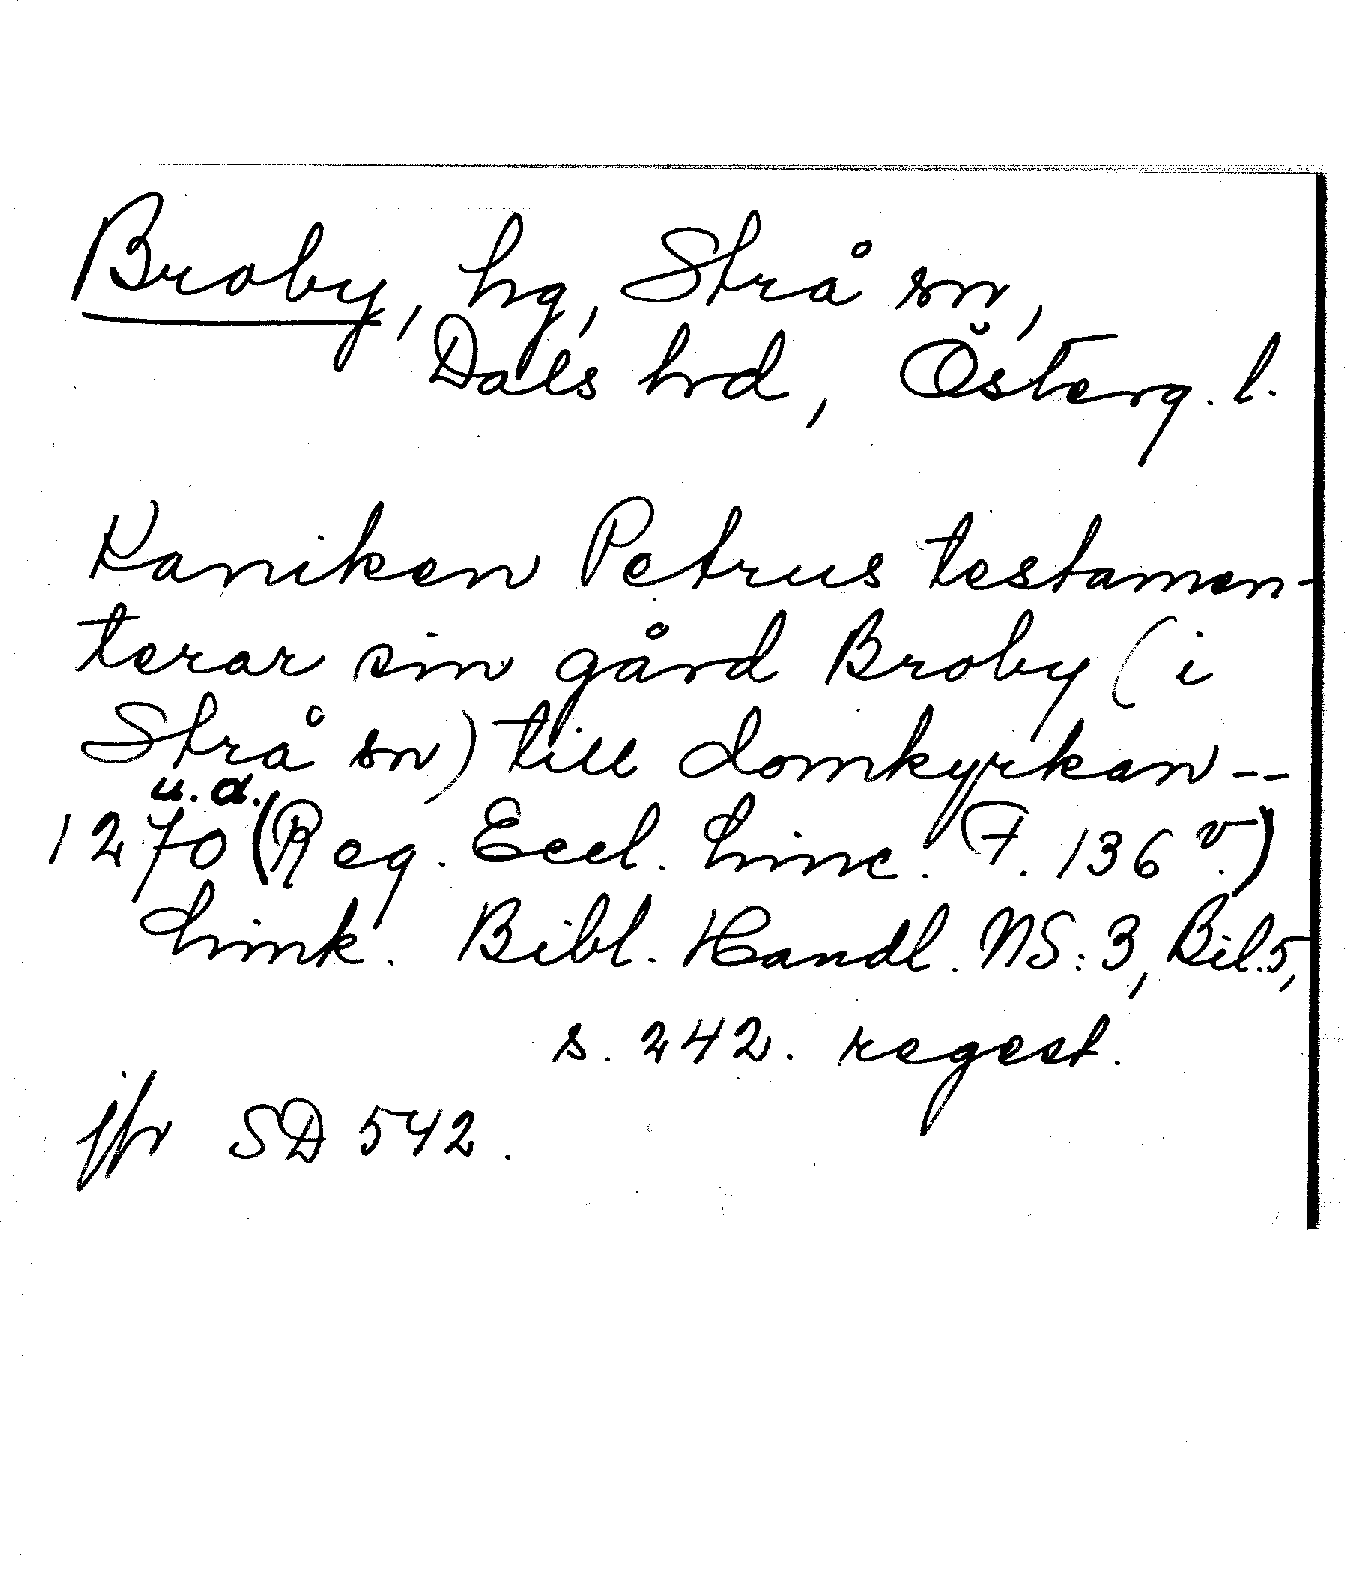 Broby, hg, Strå sn,
Dals hrd, Österg. l.
Kaniken Petrus testamen-
terar sin gård Broby (i
Strå sn) till domkyrkan --
u. d.
1270 (Reg. Eccl. Linc. F. 136 v.)
Link. Bibl. Handl. NS: 3, Bil. 5,
s. 242. regest.
jfr SD 542.